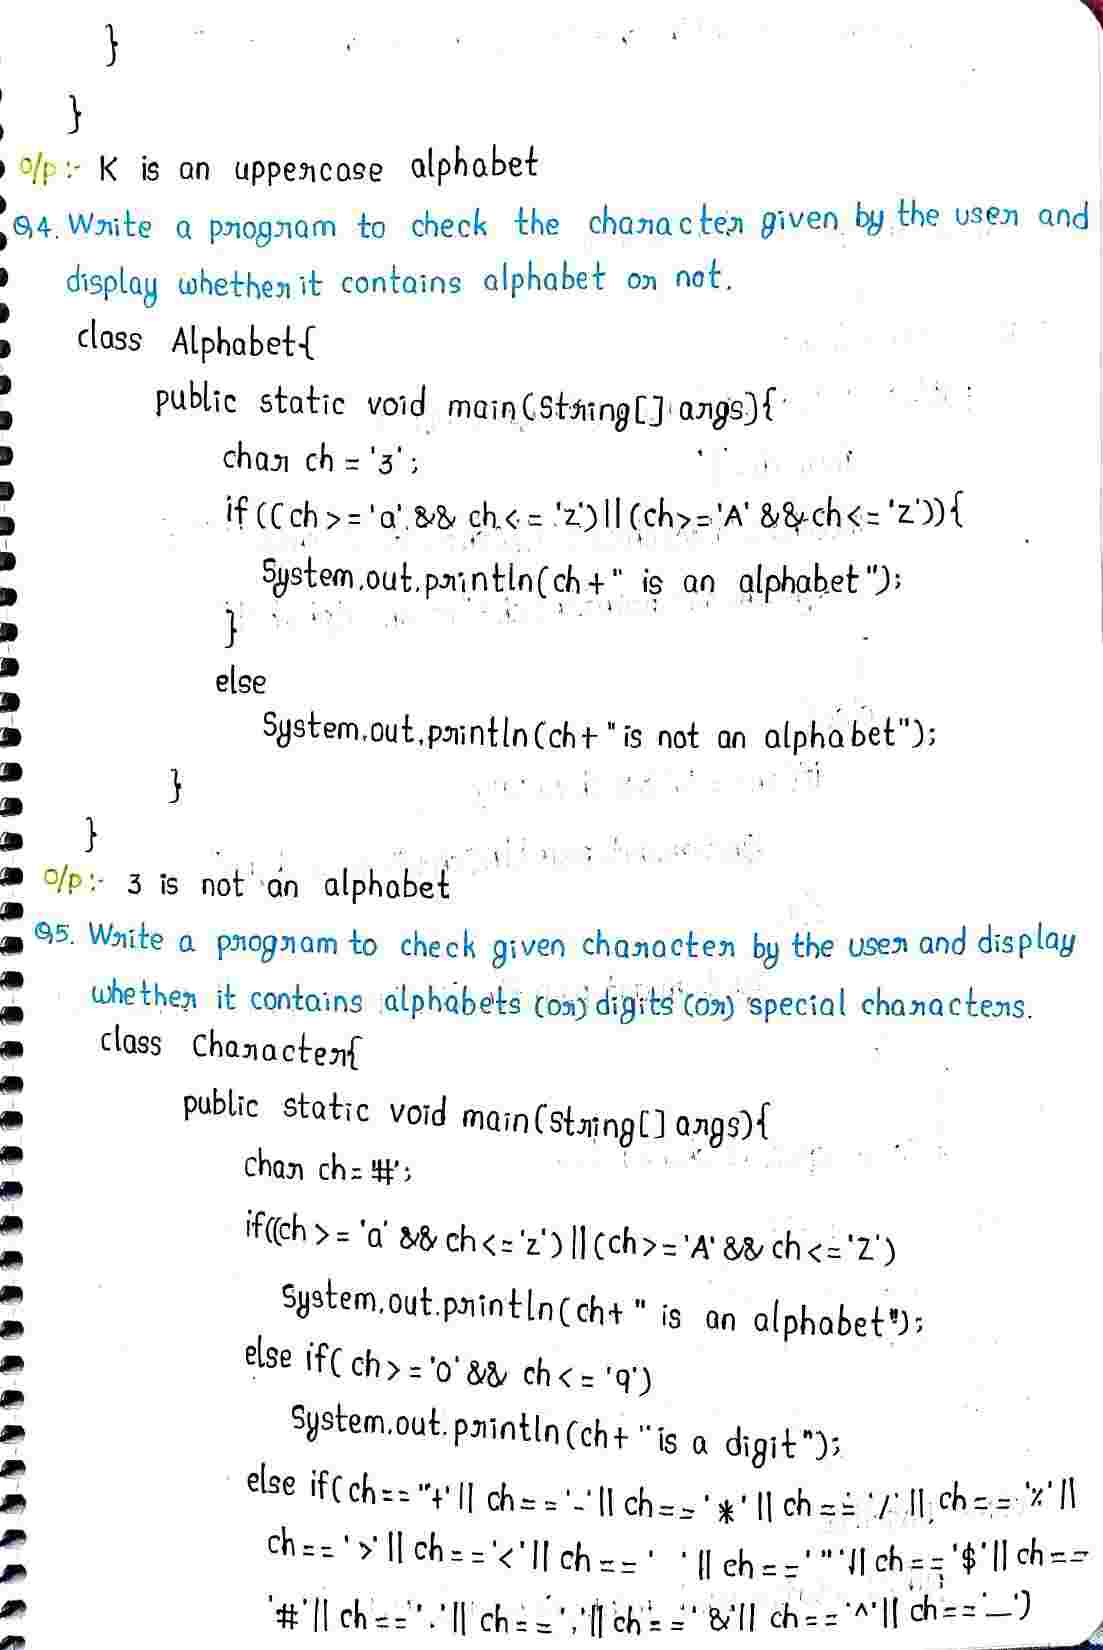 }
}
O/p:- K is an uppercase alphabet
Q4. Write a program to check the character given by the user and
display whether it contains alphabet or not.
class Alphabet{
public static void main(String[] args){
char ch = '3';
if ((ch >= 'a' && ch <= 'z') || (ch >= 'A' && ch <= 'Z')){
System.out.println(ch + " is an alphabet");
}
else
System.out.println(ch + " is not an alphabet");
}
}
O/p:- 3 is not an alphabet
Q5. Write a program to check given character by the user and display
whether it contains alphabets (or) digits (or) special characters.
class Character{
public static void main(String[] args){
char ch = '#';
if((ch >= 'a' && ch <= 'z') || (ch >= 'A' && ch <= 'Z')
System.out.println(ch + " is an alphabet");
else if( ch >= '0' && ch <= '9')
System.out.println(ch + " is a digit");
else if(ch == "+' || ch == '-' || ch == '*' || ch == '/' || ch == '%' ||
ch == '>' || ch == '<' || ch == ' ' || ch == '"' || ch == '$' || ch ==
'#' || ch == '.' || ch == ',' || ch == '&' || ch == '^' || ch == '_')